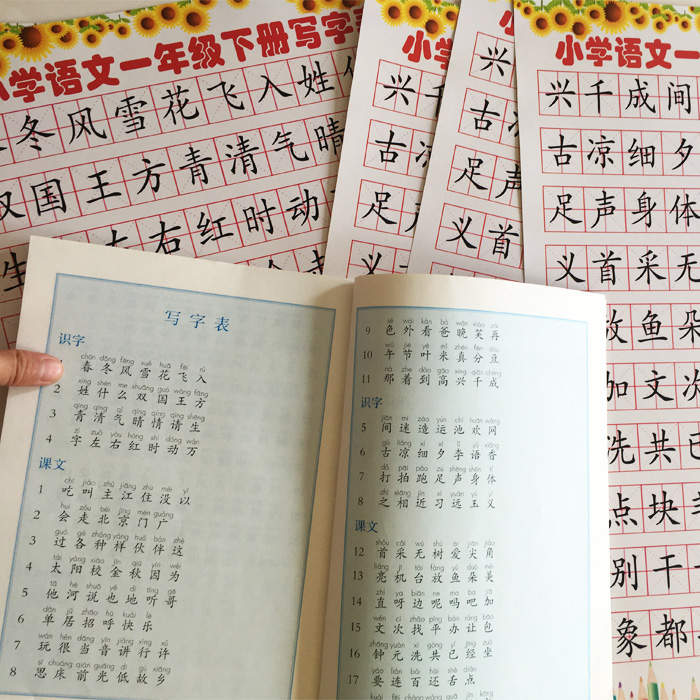 小学语文一年级下册写字
冬风雪花飞入姓
双国王方青清气晴
左右红时动
小学
兴千
古凉
足
义
小学
兴
古
足声
义首
小学语文一
兴千成间
古凉细夕
足声身体
义首采无
放鱼朵
加文次
洗共已
点块
别干
象都
写字表
识字
chūn dōng fēng xuě huā fēi rù
1 春冬风雪花飞入
xìng shén me shuāng guó wáng fāng
2 姓什么双国王方
qīng qīng qì qíng qíng qǐng shēng
3 青清气晴情请生
zì zuǒ yòu hóng shí dòng wàn
4 字左右红时动万
课文
chī jiào zhǔ jiāng zhù méi yǐ
1 吃叫主江住没以
huì zǒu běi jīng mén guǎng
2 会走北京门广
guò gè zhǒng yàng huǒ bàn zhè
3 过各种样伙伴这
tài yáng xiào jīn qiū yīn wèi
4 太阳校金秋因为
tā hé shuō yě dì tīng gē
5 他河说也地听哥
dān jū zhāo hū kuài lè
6 单居招呼快乐
wán hěn dāng yīn jiǎng xíng xǔ
7 玩很当音讲行许
sī chuáng qián guāng dī gù xiāng
8 思床前光低故乡
sè wài kàn bà wǎn xiào zài
9 色外看爸晚笑再
wǔ jié yè mǐ zhēn fēn dòu
10 午节叶米真分豆
nà zhe dào gāo xìng qiān chéng
11 那着到高兴千成
识字
jiān mí zào yùn chí huān wǎng
5 间迷造运池欢网
gǔ liáng xì xī lǐ yǔ xiāng
6 古凉细夕李语香
dǎ pāi pǎo zú shēng shēn tǐ
7 打拍跑足声身体
zhī xiāng jìn xí yuǎn yù yì
8 之相近习远玉义
课文
shǒu cǎi wú shù ài jiān jiǎo
12 首采无树爱尖角
liàng jī tái fàng yú duǒ měi
13 亮机台放鱼朵美
zhí ya biān ne ma ba jiā
14 直呀边呢吗吧加
wén cì zhǎo píng bàn ràng bāo
15 文次找平办让包
zhōng yuán xǐ gòng yǐ jīng zuò
16 钟元洗共已经坐
yào lián bǎi hái shé diǎn
17 要连百还舌点